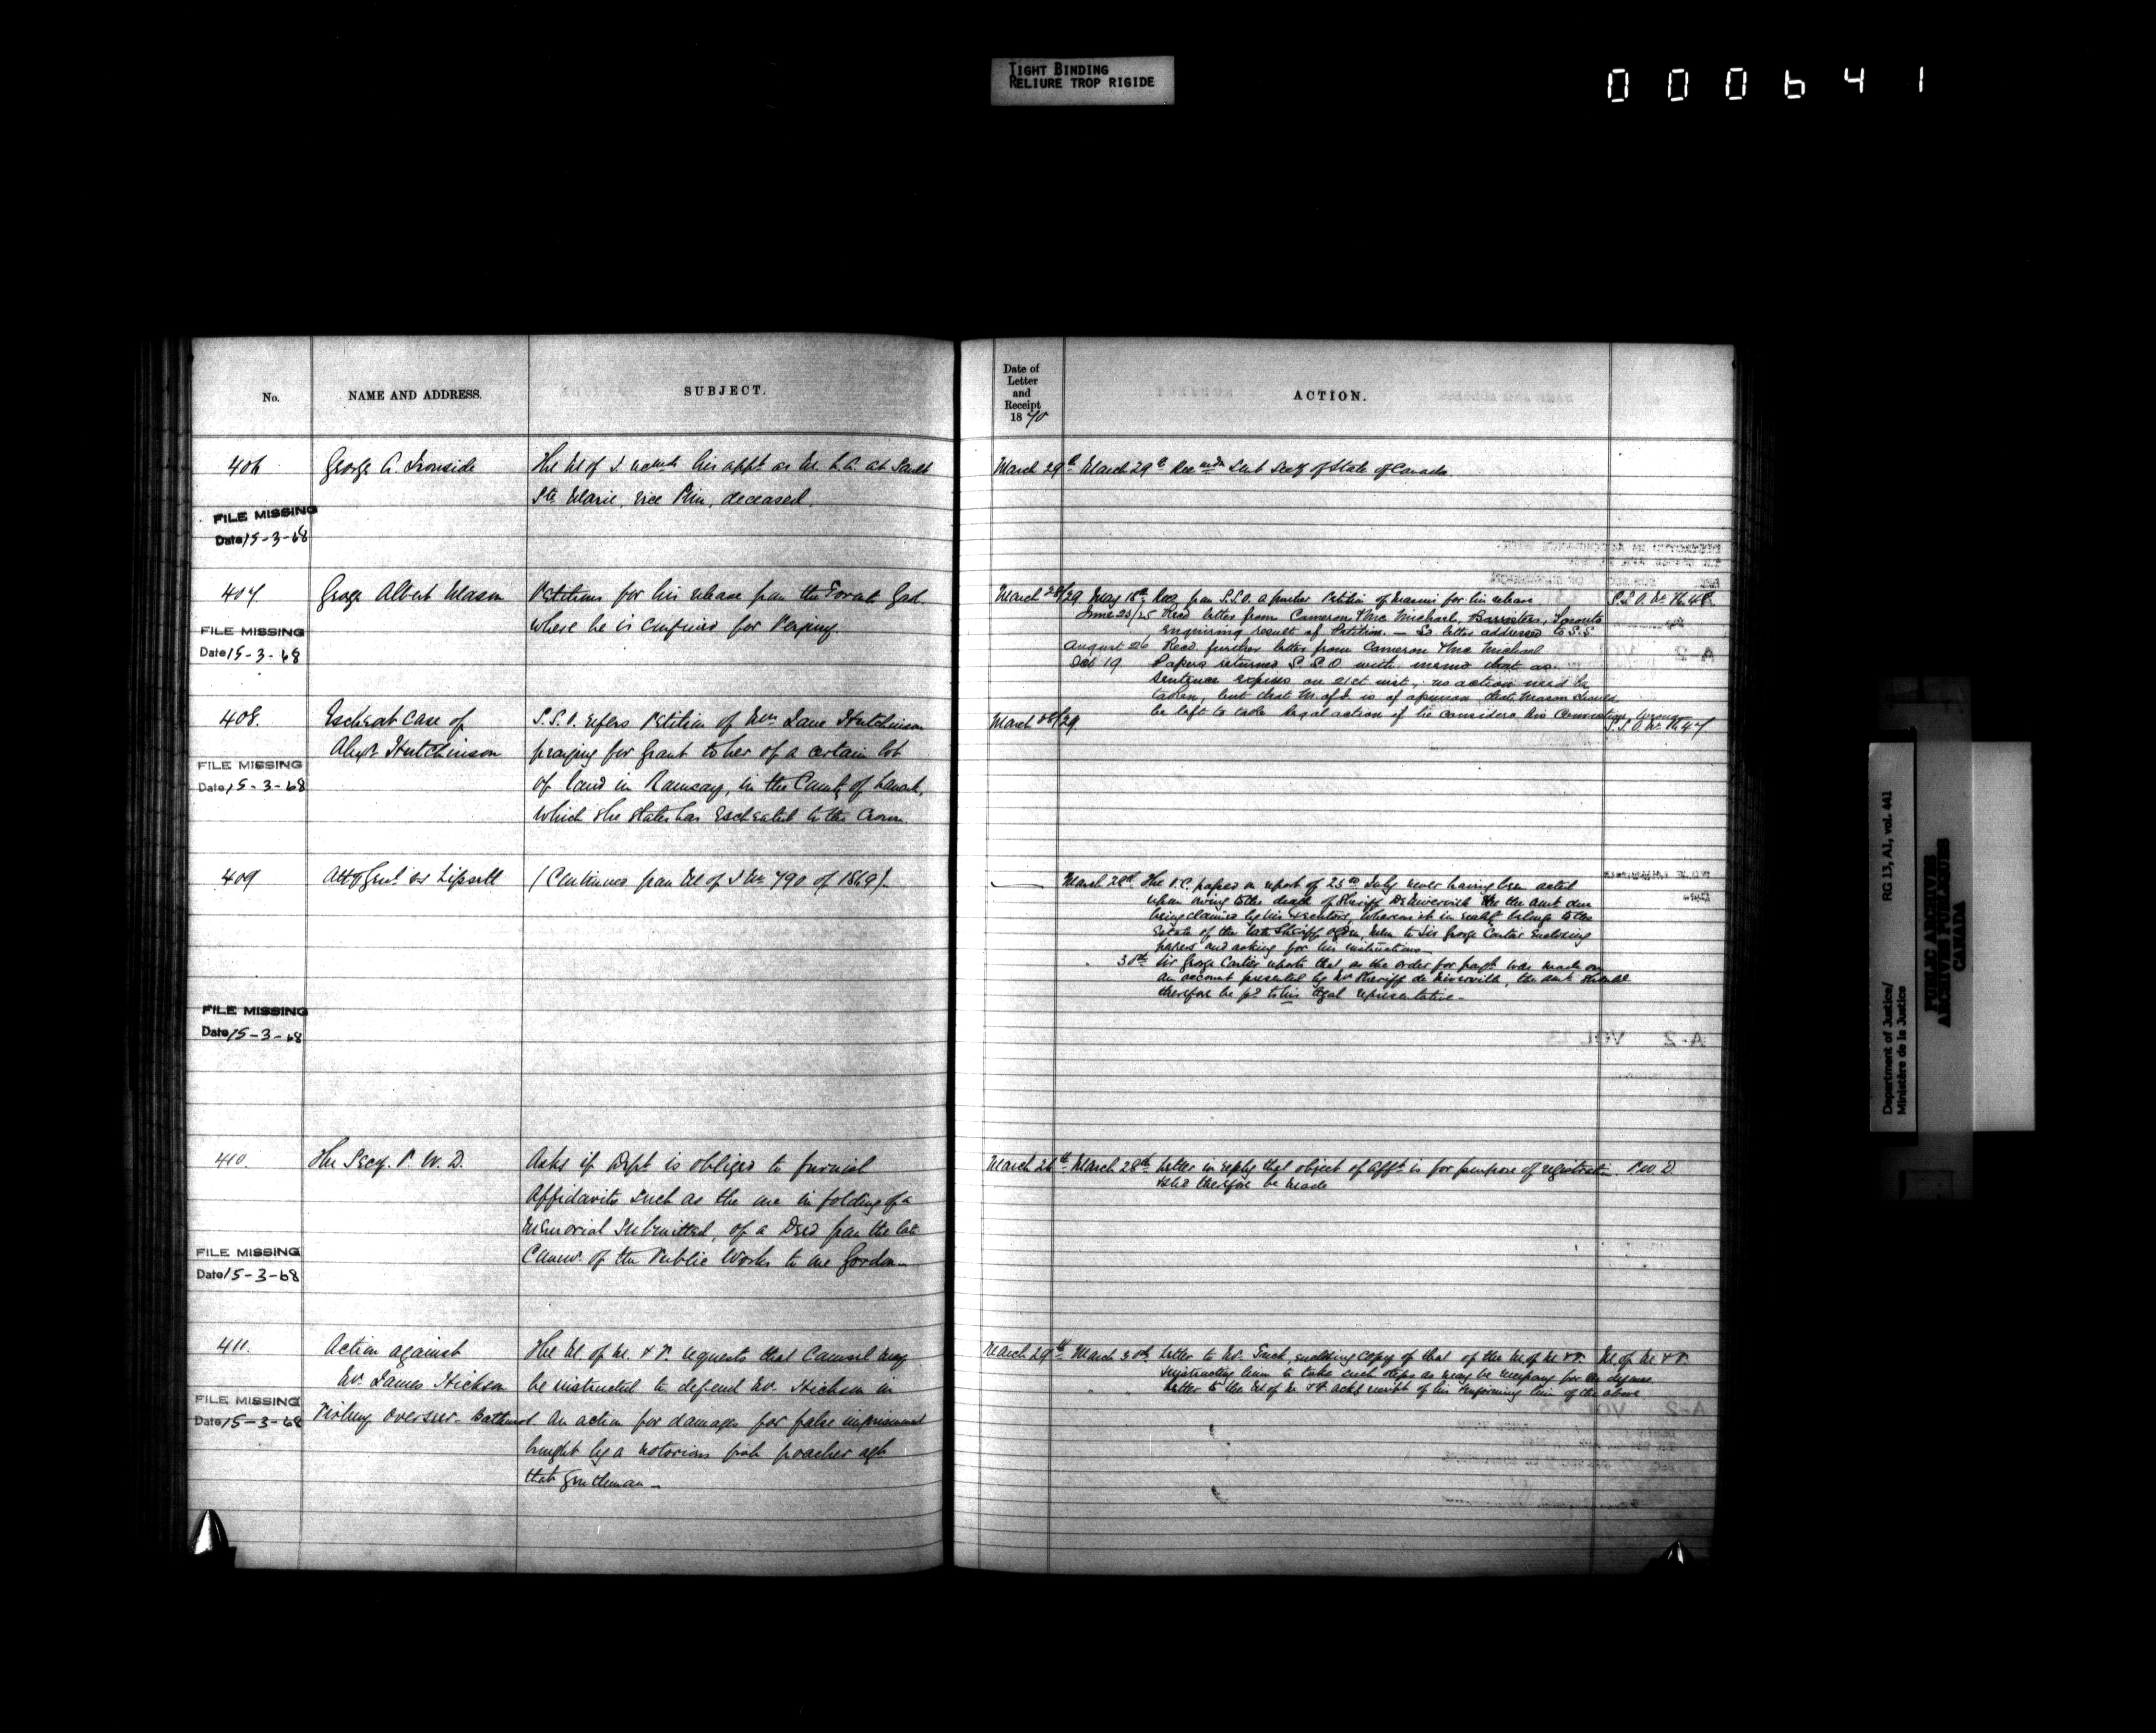 TIGHT BINDING
RELIURE TROP RIGIDE
000641
No.
NAME AND ADDRESS.
SUBJECT.
Date of
Letter
and
Receipt
1870
ACTION.
406
George A. Ironside
The M of J. recmds his appt. as M. L. A. at Sault
Ste Marie, vice Prin, deceased.
March 29th March 29th Recmdn Sent Secy of State of Canada
FILE MISSING
Date 15-3-68
407.
George Albert Mason
Petitions for his release from the Toronto Gaol
where he is confined for Perjury.
March 28/29 May 18th Rec. from S.S.O. a further Petition of Mason's for his release
S.S.O. No. 1648
June 23/25 Recd letter from Cameron & McMichael, Barristers, Toronto
enquiring result of Petition. — So letter addressed to S.S.
August 26 Recd further letter from Cameron & McMichael
Oct 19 Papers returned S.S.O with memo that as
sentence expires on 21st inst, no action need be
taken, but that M. of J. is of opinion that Mason should
be left to take legal action if he considers his Conviction wrong
FILE MISSING
Date 15-3-68
408.
Escheat Case of
Alexr Hutchinson
S.S.O. refers Petition of Mrs. Jane Hutchinson
praying for Grant to her of a certain lot
of land in Ramsay, in the County of Lanark,
which she states has Escheated to the Crown.
March 28/29
S.S.O. No. 1647
FILE MISSING
Date 15-3-68
409
Atty Genl. vs Lipsett
(Continued from M of J No 790 of 1869).
March 28th The P.C. papers on report of 23rd July never having been acted
upon owing to the death of Sheriff De Niverville & the amt. due
being claimed by his Executors, whereas it in reality belongs to the
Estate of the late Sheriff Ogden, Mem to Sir George Cartier Enclosing
papers and asking for his instructions
" 30th Sir George Cartier reports that as the order for paymt. was made on
an account presented by Mr Sheriff de Niverville, the amt should
therefore be pd to his legal representative.
FILE MISSING
Date 15-3-68
410.
The Secy. P. W. D.
Asks if Dept is obliged to furnish
Affidavits such as the one in folding of a
Memorial Submitted, of a Deed from the late
Commrs. of the Public Works to one Gordon
March 26th March 28th Letter in reply that object of afft. is for purpose of registration
P W D
& shd therefore be made
FILE MISSING
Date 15-3-68
411.
Action against
Mr. James Hickson
Fishery Overseer - Bathurst
The M. of M. & F. requests that Counsel may
be instructed to defend Mr. Hickson in
an action for damages for false imprisonment
brought by a notorious fish poacher agst
that gentleman —
March 29th March 30th Letter to Mr. enclosing copy of that of the M of M & F.
M of M & F.
instructing him to take such steps as may be necessary for the defense
" " Letter to the M of M & F. ackg receipt of his & informing him of the above
FILE MISSING
Date 15-3-68
Department of Justice/
Ministère de la Justice
RG 13, A1, vol. 441
PUBLIC ARCHIVES
ARCHIVES PUBLIQUES
CANADA